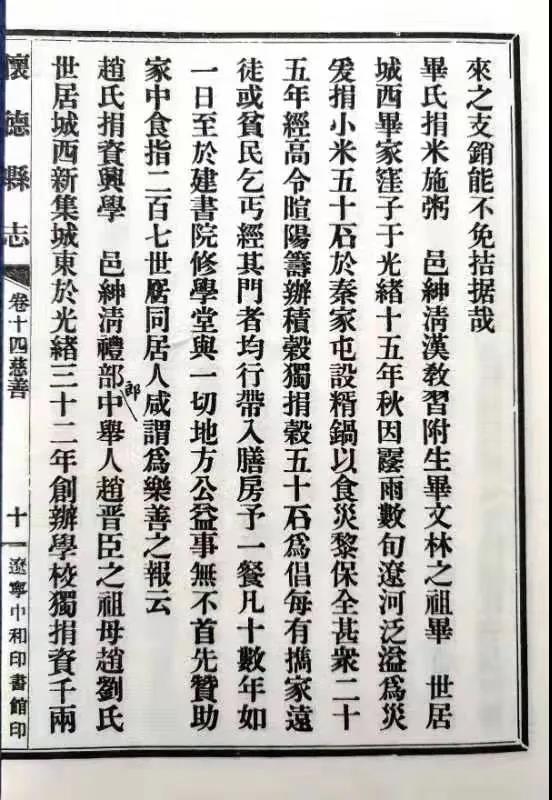 來之支銷能不免拮据哉
畢氏捐米施粥 邑紳淸漢敎習附生畢文林之祖畢 世居
城西畢家窪子于光緒十五年秋因霪雨數旬遼河泛溢爲災
爰捐小米五十石於秦家屯設糈鍋以食災黎保全甚衆二十
五年經高令暄陽籌辦積穀獨捐穀五十石爲倡每有擕家遠
徒或貧民乞丐經其門者均行帶入膳房予一餐凡十數年如
一日至於建書院修學堂與一切地方公益事無不首先贊助
家中食指二百七世居同居人咸謂爲樂善之報云
趙氏捐資興學 邑紳淸禮部中舉人趙晋臣之祖母趙劉氏
郎
世居城西新集城東於光緒三十二年創辦學校獨捐資千兩
懷德縣志
卷十四慈善
十一
遼寧中和印書館印